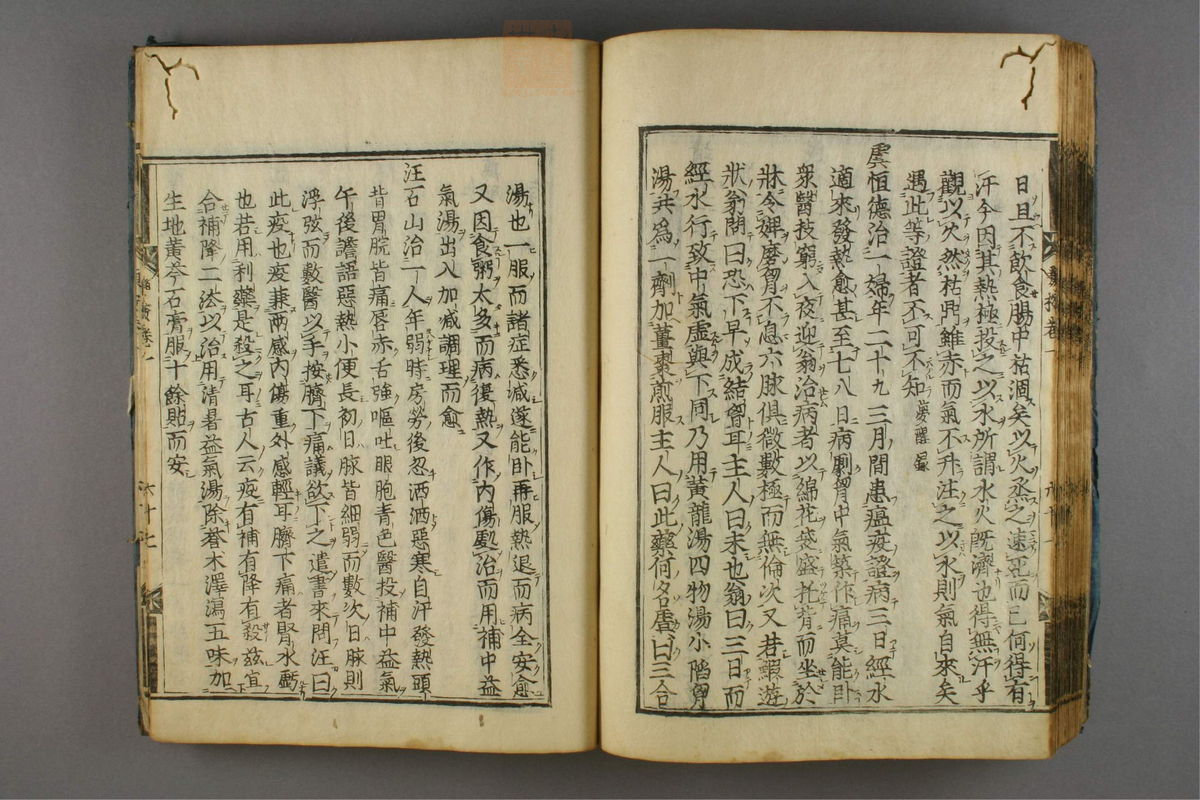 日且不飲食腸中枯涸矣以火烝之速死而已何得有
汗今因其熱極投之以水所謂水火既濟也得無汗乎
觀以火然枯鼎雖赤而氣不升注之以水則氣自來矣
遇此等證者不可不知
虞恒德治一婦年二十九三月間患瘟疫證病三日經水
適來發熱愈甚至七八日病劇胷中氣築作痛莫能卧
衆醫技窮入夜迎翁治病者以綿花袋盛托背而坐於
牀令婢磨胷不息六脉俱微數極而無倫次又若鰕遊
狀翁問曰恐下早成結胷耳主人曰未也翁曰三日而
經水行致中氣虚與下同乃用黄龍湯四物湯小陷胷
湯共爲一劑加薑棗煎服主人曰此藥何名虞曰三合
湯也一服而諸症悉减遂能卧再服熱退而病全安愈
又因食粥太多而病復熱又作内傷處治而用補中益
氣湯出入加减調理而愈
汪石山治一人年弱時房勞後忽洒洒惡寒自汗發熱頭
背胃脘皆痛唇赤舌強嘔吐眼胞青色醫投補中益氣
午後譫語惡熱小便長初日脉皆細弱而數次日脉則
浮弦而數醫以手按臍下痛議欲下之遣書來問汪曰
此疫也疫兼两感内傷重外感輕耳臍下痛者腎水虧
也若用利藥是殺之耳古人云疫有補有降有散兹宜
合補降二法以治用清暑益氣湯除蒼术澤瀉五味加
生地黄芩石膏服十餘貼而安
六十七